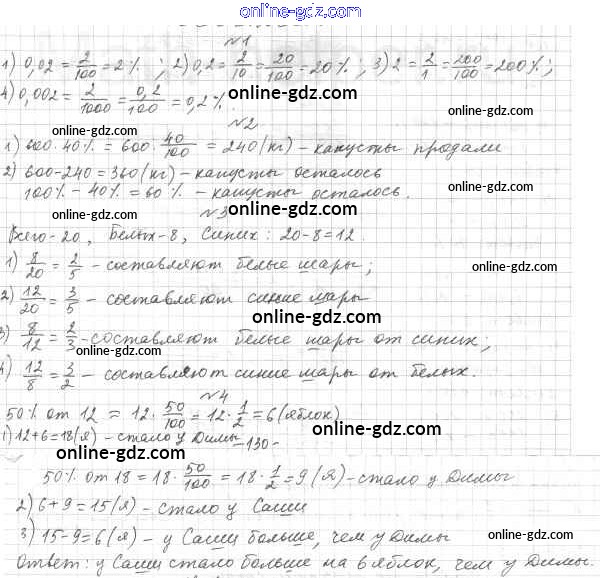 online-gdz.com
№1
1) 0,02 = 2/100 = 2% ; 2) 0,2 = 2/10 = 20/100 = 20% ; 3) 2 = 2/1 = 200/100 = 200% ;
4) 0,002 = 2/1000 = 0,2/100 = 0,2%.
online-gdz.com
№2
online-gdz.com
1) 600·40% = 600·40/100 = 240(кг) – капусты продали
2) 600-240 = 360(кг) – капусты осталось
online-gdz.com
100% – 40% = 60% – капусты осталось.
online-gdz.com
№3
Всего-20, Белых-8, Синих: 20-8=12.
online-gdz.com
1) 8/20 = 2/5 – составляют белые шары;
online-gdz.com
2) 12/20 = 3/5 – составляют синие шары
online-gdz.com
3) 8/12 = 2/3 – составляют белые шары от синих;
online-gdz.com
4) 12/8 = 3/2 – составляют синие шары от белых.
online-gdz.com
№4
50% от 12 = 12·50/100 = 12·1/2 = 6(яблок)
1) 12+6=18(я) – стало у Димы
-130-
online-gdz.com
online-gdz.com
50% от 18 = 18·50/100 = 18·1/2 = 9(я) – стало у Димы
online-gdz.com
2) 6+9=15(я) – стало у Саши
online-gdz.com
3) 15-9=6(я) – у Саши больше, чем у Димы
online-gdz.com
Ответ: у Саши стало больше на 6 яблок, чем у Димы.
online-gdz.com